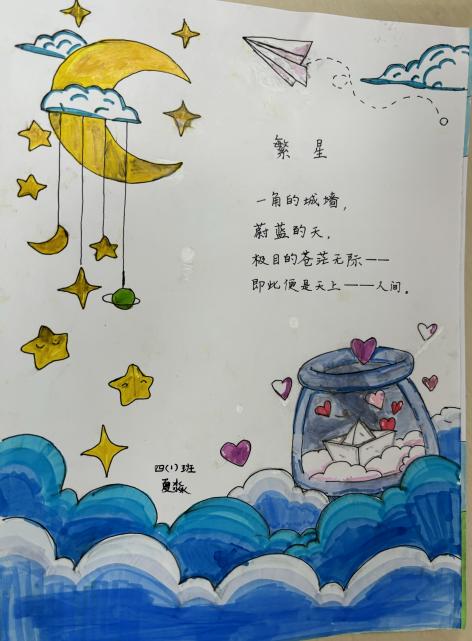 繁星
一角的城墙，
蔚蓝的天，
极目的苍茫无际——
即此便是天上——人间。
四(1)班